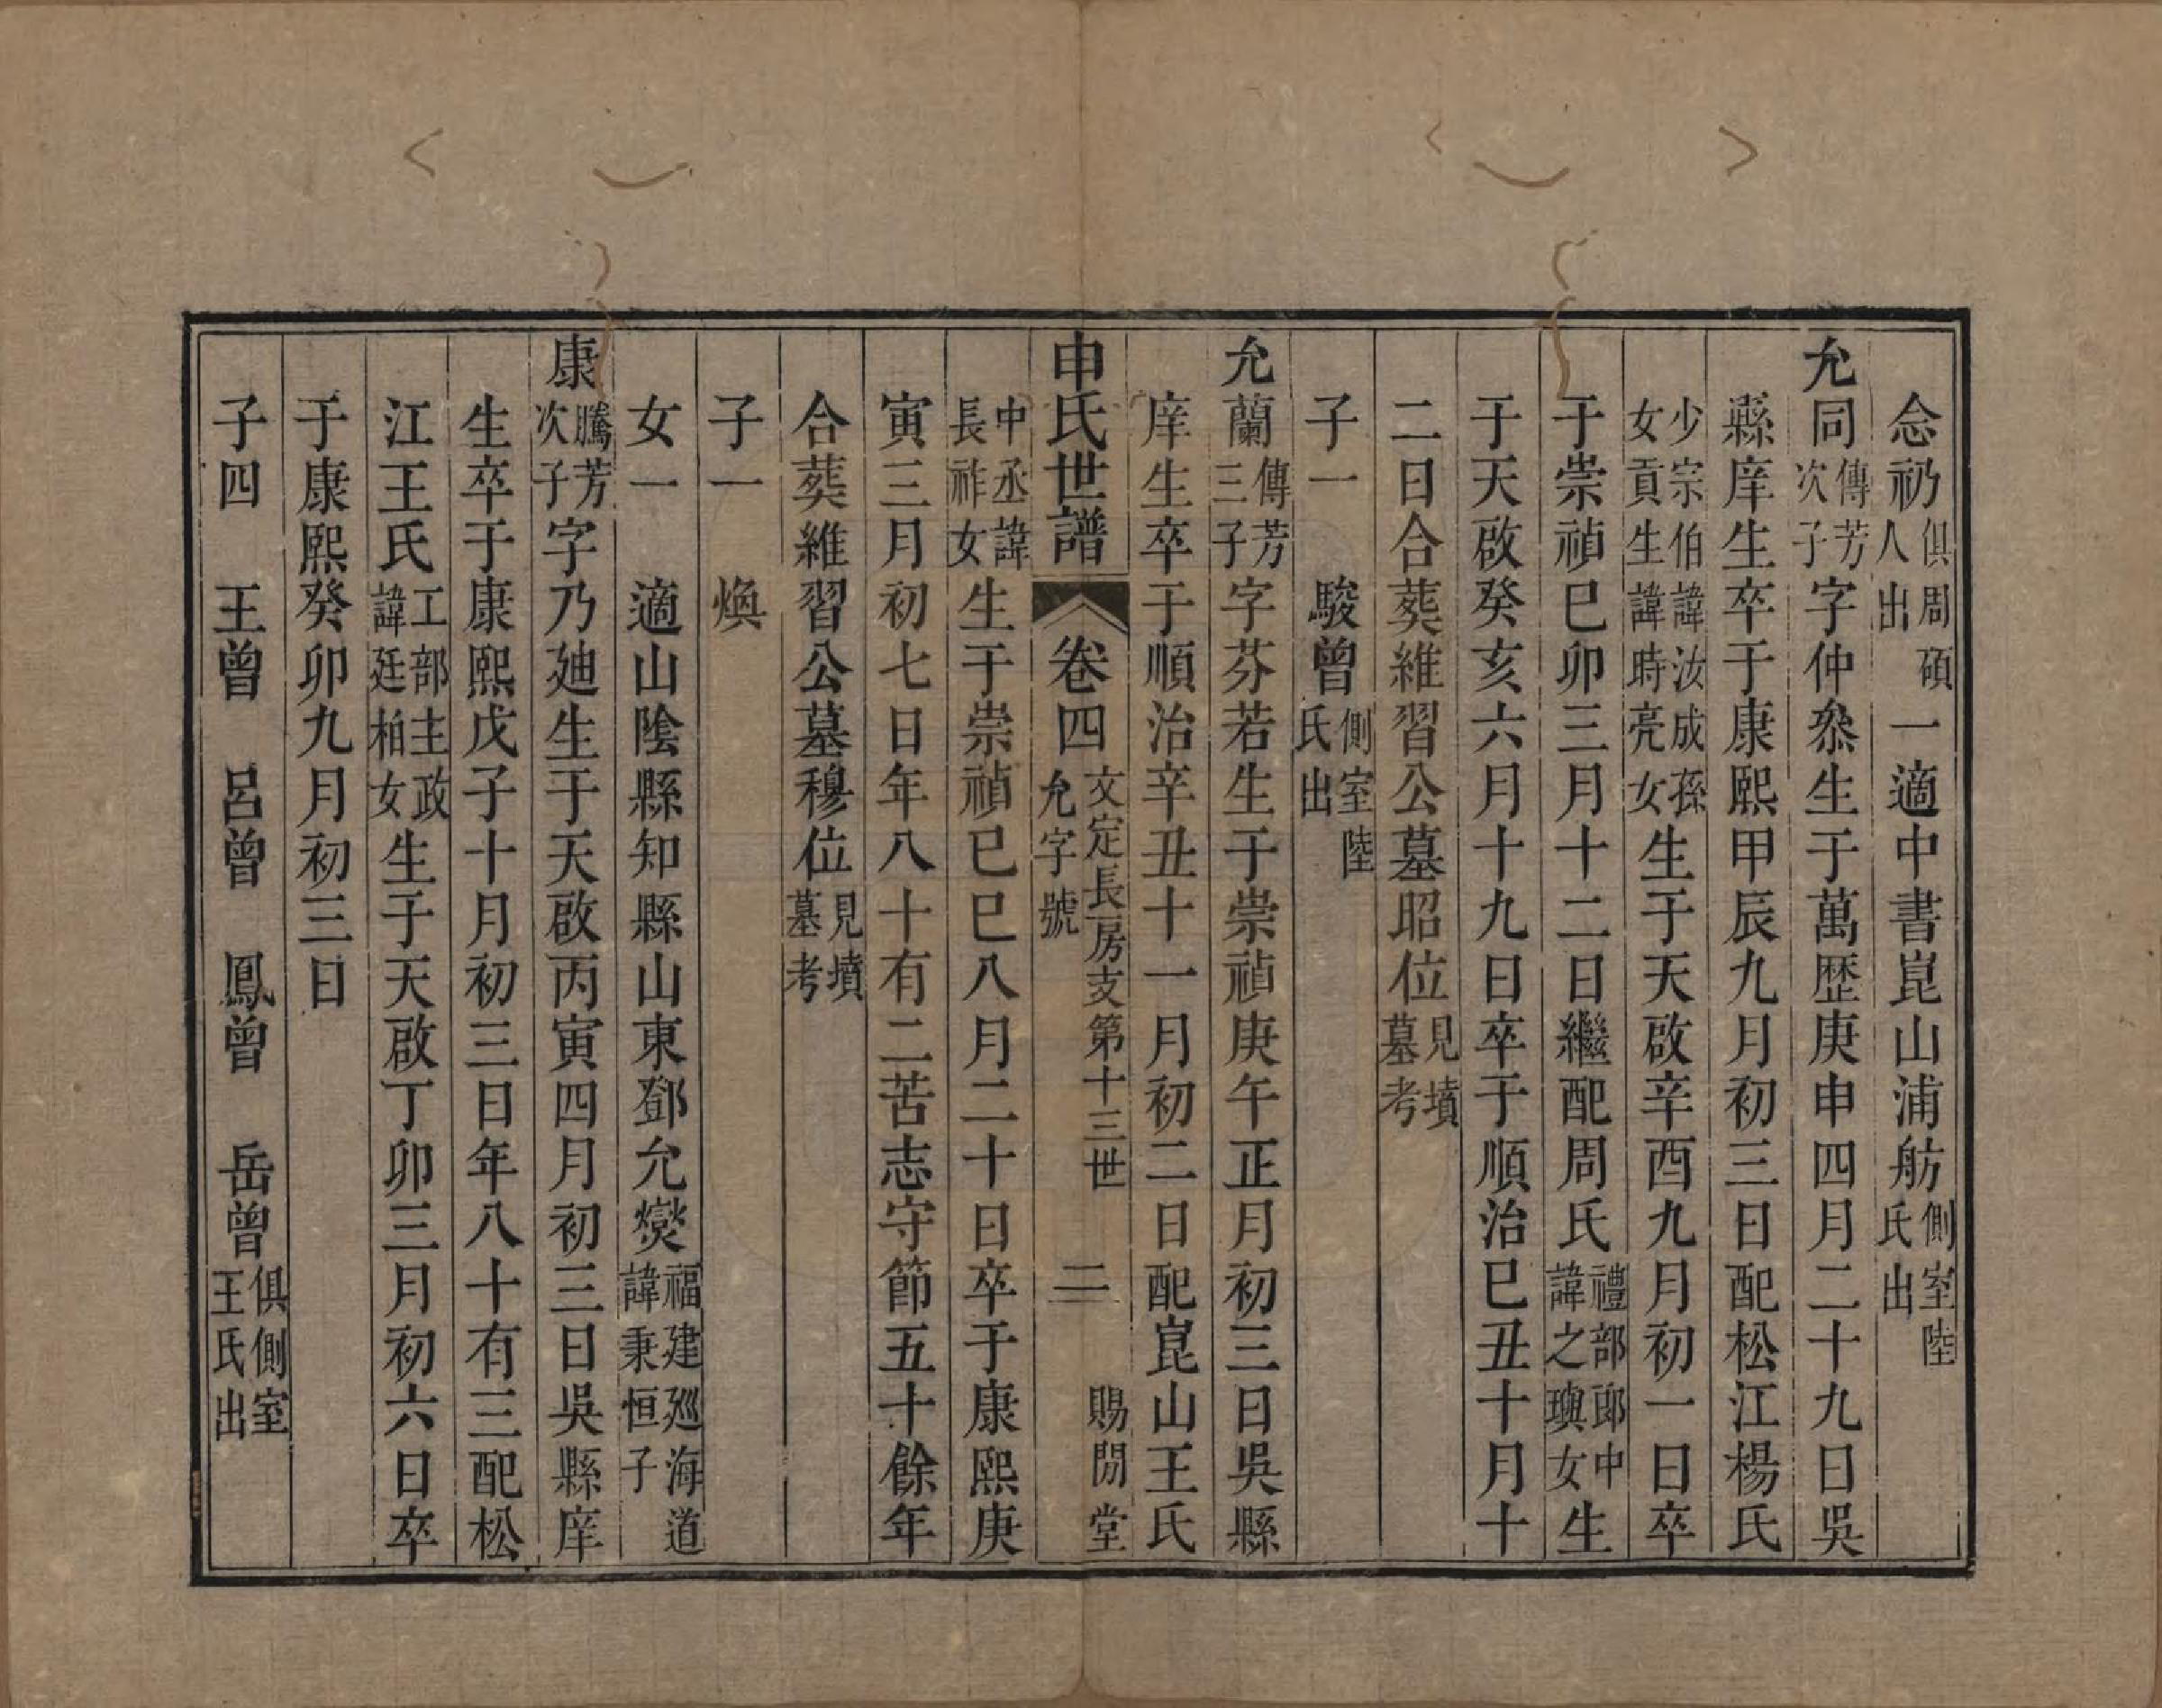 念礽俱周碩人出一適中書崑山浦舫側室陸氏出
允同傳芳次子字仲叅生于萬歷庚申四月二十九日吳
縣庠生卒于康熙甲辰九月初三日配松江楊氏
少宗伯諱汝成孫女貢生諱時亮女生于天啟辛酉九月初一日卒
于崇禎已卯三月十二日繼配周氏禮部郎中諱之璵女生
于天啟癸亥六月十九日卒于順治已丑十月十
二日合葬維習公墓昭位見墳墓考
子一 駿曾側室陸氏出
允蘭傳芳三子字芬若生于崇禎庚午正月初三日吳縣
庠生卒于順治辛丑十一月初二日配崑山王氏
申氏世譜 卷四 文定長房支第十三世 允字號 二 賜閒堂
中丞諱長祚女生于崇禎已巳八月二十日卒于康熙庚
寅三月初七日年八十有二苦志守節五十餘年
合葬維習公墓穆位見墳墓考
子一 煥
女一 適山陰縣知縣山東鄧允燮福建廵海道諱秉恒子
康騰芳次子字乃廸生于天啟丙寅四月初三日吳縣庠
生卒于康熙戊子十月初三日年八十有三配松
江王氏工部主政諱廷柏女生于天啟丁卯三月初六日卒
于康熙癸卯九月初三日
子四 王曾 呂曾 鳳曾 岳曾俱側室王氏出